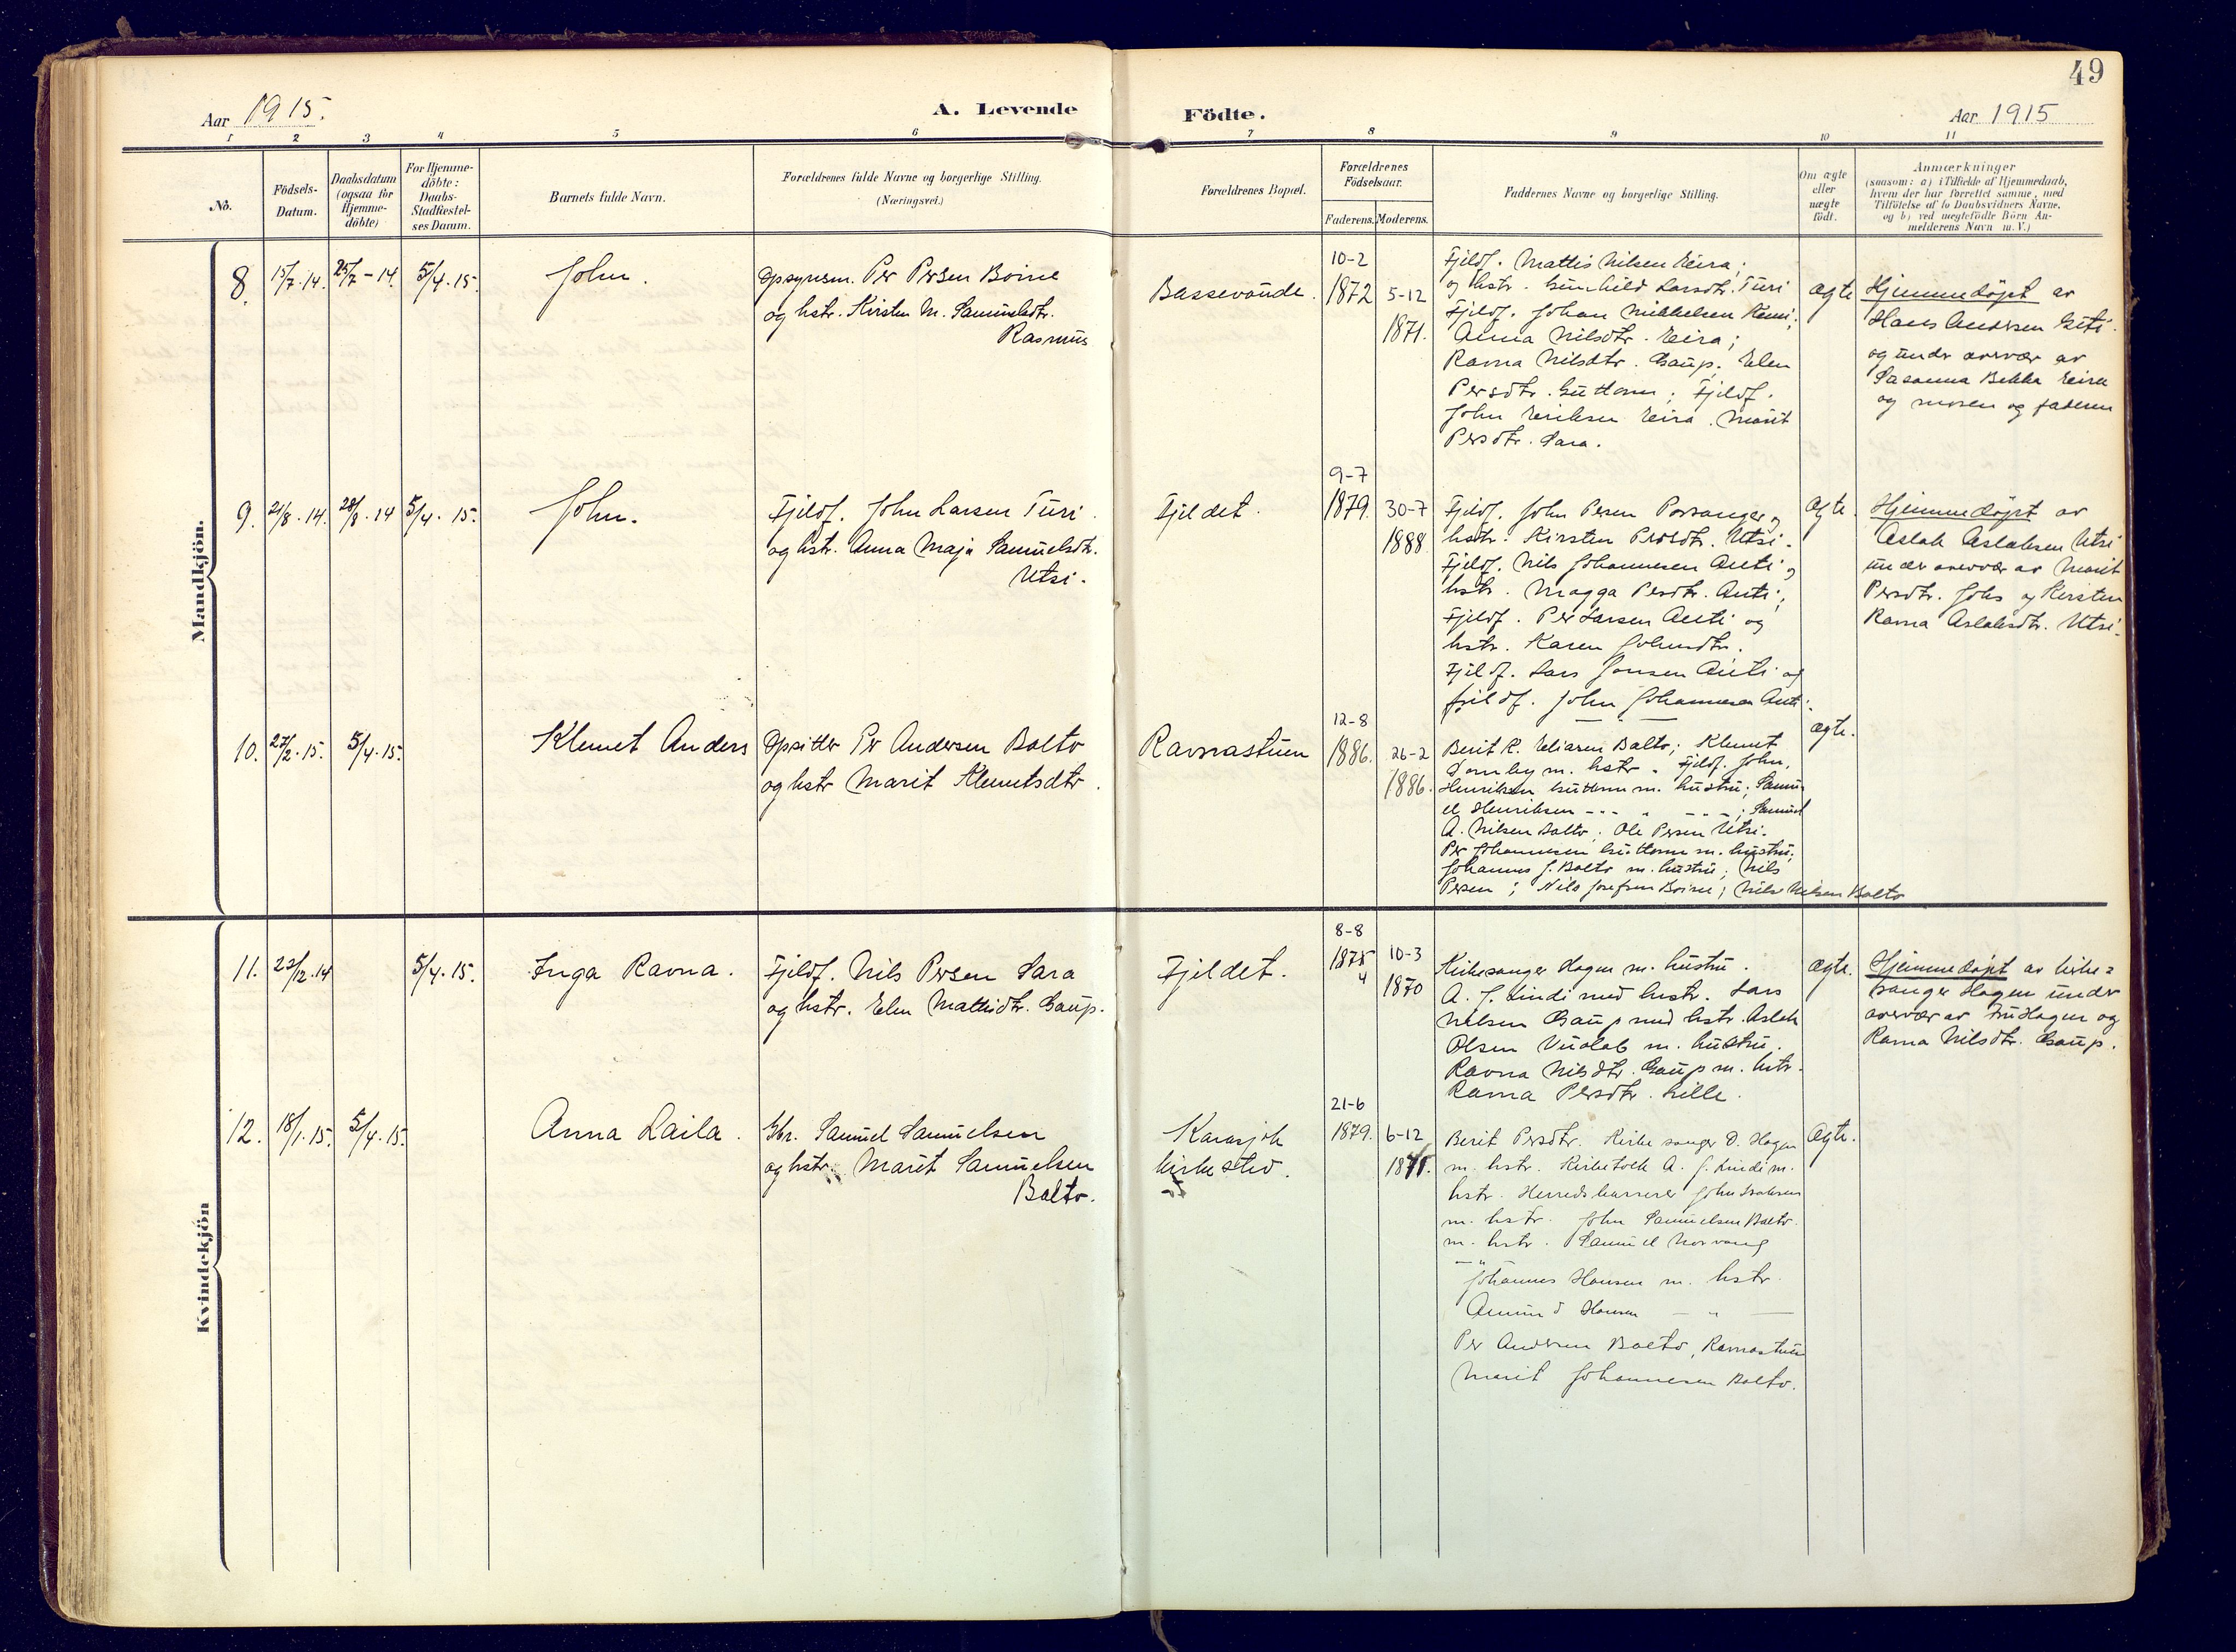 49
Aar 1915.
A. Levende Födte.
Aar 1915
1 2 3 4 5 6 7 8 9 10 11
No.
Födsels-
Datum.
Daabsdatum
(ogsaa for
Hjemme-
döbte)
For Hjemme-
döbte:
Daabs-
Stadfæstel-
ses Datum.
Barnets fulde Navn.
Forældrenes fulde Navne og borgerlige Stilling.
(Næringsvei.)
Forældrenes Bopæl.
Forældrenes
Födselsaar.
Faderens. Moderens.
Faddernes Navne og borgerlige Stilling.
Om ægte
eller
uægte
födt.
Anmærkninger
(saasom: a) i Tilfælde af Hjemmedaab,
hvem der har forrettet samme, med
Tilföielse af to Daabsvidners Navne,
og b) ved uægtefödte Börn An-
melderens Navn m. V.)
Mandkjön.
8.
15/7-14.
25/7-14
5/4-15.
John.
Opsynsm. Per Persen Boine
og hstr. Kirsten M. Samuelsdtr.
Rasmus
Bassevoude.
10-2
1872
5-12
1871.
Fjeldf. Mattis Nilsen Eira;
og hstr. Gunhild Larsdtr. Turi
Fjeldf. Johan Mikkelsen
Anna Nilsdtr. Eira;
Ravna Nilsdtr. Gaup; Elen
Persdtr. Guttorm; Fjeldf.
John Eriksen Eira. Marit
Persdtr. Sara.
ægte
Hjemmedöpt av
Hans Andersen
og under overvær av
Susanna Bekka Eira
og moren og faderen
9.
21/8-14.
28/8-14
5/4-15.
John.
Fjeldf. John Larsen Turi
og hstr. Anna Maja Samuelsdtr.
Utsi.
Fjeldet.
9-7
1879.
30-7
1888.
Fjeldf. John Persen Porsanger og
hstr. Kirsten Persdtr. Utsi.
Fjeldf. Nils Johannesen Anti og
hstr. Magga Persdtr. Anti;
Fjeldf. Per Larsen Anti og
hstr. Karen Johnsdtr.
Fjeldf. Lars Jonsen Anti og
fjeldf. John Johannesen Anti.
ægte.
Hjemmedöpt av
Aslak Aslaksen Utsi
under overvær av Marit
Persdtr. Johs og Kirsten
Ravna Aslaksdtr. Utsi.
10.
27/2-15.
5/4-15.
Klemet Anders
Opsitter Per Andersen Balto
og hstr Marit Klemetsdtr.
Ravnastuen
12-8
1886.
26-2
1886.
Berit K. Eliasen Balto; Klemet
Somby m. hstr. Fjeldf. John
Henriksen Guttorm m. hustru; Samu-
el Henriksen --- " ---; Samuel
A. Nilsen Balto. Ole Persen Utsi.
Per Johannesen Guttorm m. hustru;
Johannes J. Balto m. hustru; Nils
Persen; Nils Josefsen Boine; Nils Nilsen Balto
ægte.
Kvindekjön
11.
/12-14
5/4-15.
Inga Ravna.
Fjeldf. Nils Persen Sara
og hstr. Elen Mathisdtr. Gaup.
Fjeldet.
8-8
1875
4
10-3
1870
Kirkesanger Hagen m. hustru.
A. J. Lindi med hustr. Lars
Nilsen Gaup med hstr. Aslak
Olsen Vuolab m. hustru.
Ravna Nilsdtr. Gaup m. hstr.
Ravna Persdtr. Lille.
ægte.
Hjemmedöpt av kirke=
sanger Hagen under
overvær av fru Hagen og
Ravna Nilsdtr. Gaup.
12.
18/1-15.
5/4-15.
Anna Laila.
Hr. Samuel Samuelsen
og hstr. Marit Samuelsen
Balto.
Karasjok
kirkested.
21-6
1879.
6-12
Berit Persdtr. Kirkesanger O. Hagen
m. hstr. Kirketolk A. J. Lindi m.
hstr. Herredskasserer John Isaksen
m. hstr. John Samuelsen Balto
m. hstr. Samuel Norvang
— " —
Johannes Hansen m. hstr.
Amund Hansen — " —
Per Andersen Balto, Ravnastuen
Marit Johannesen Balto.
ægte.